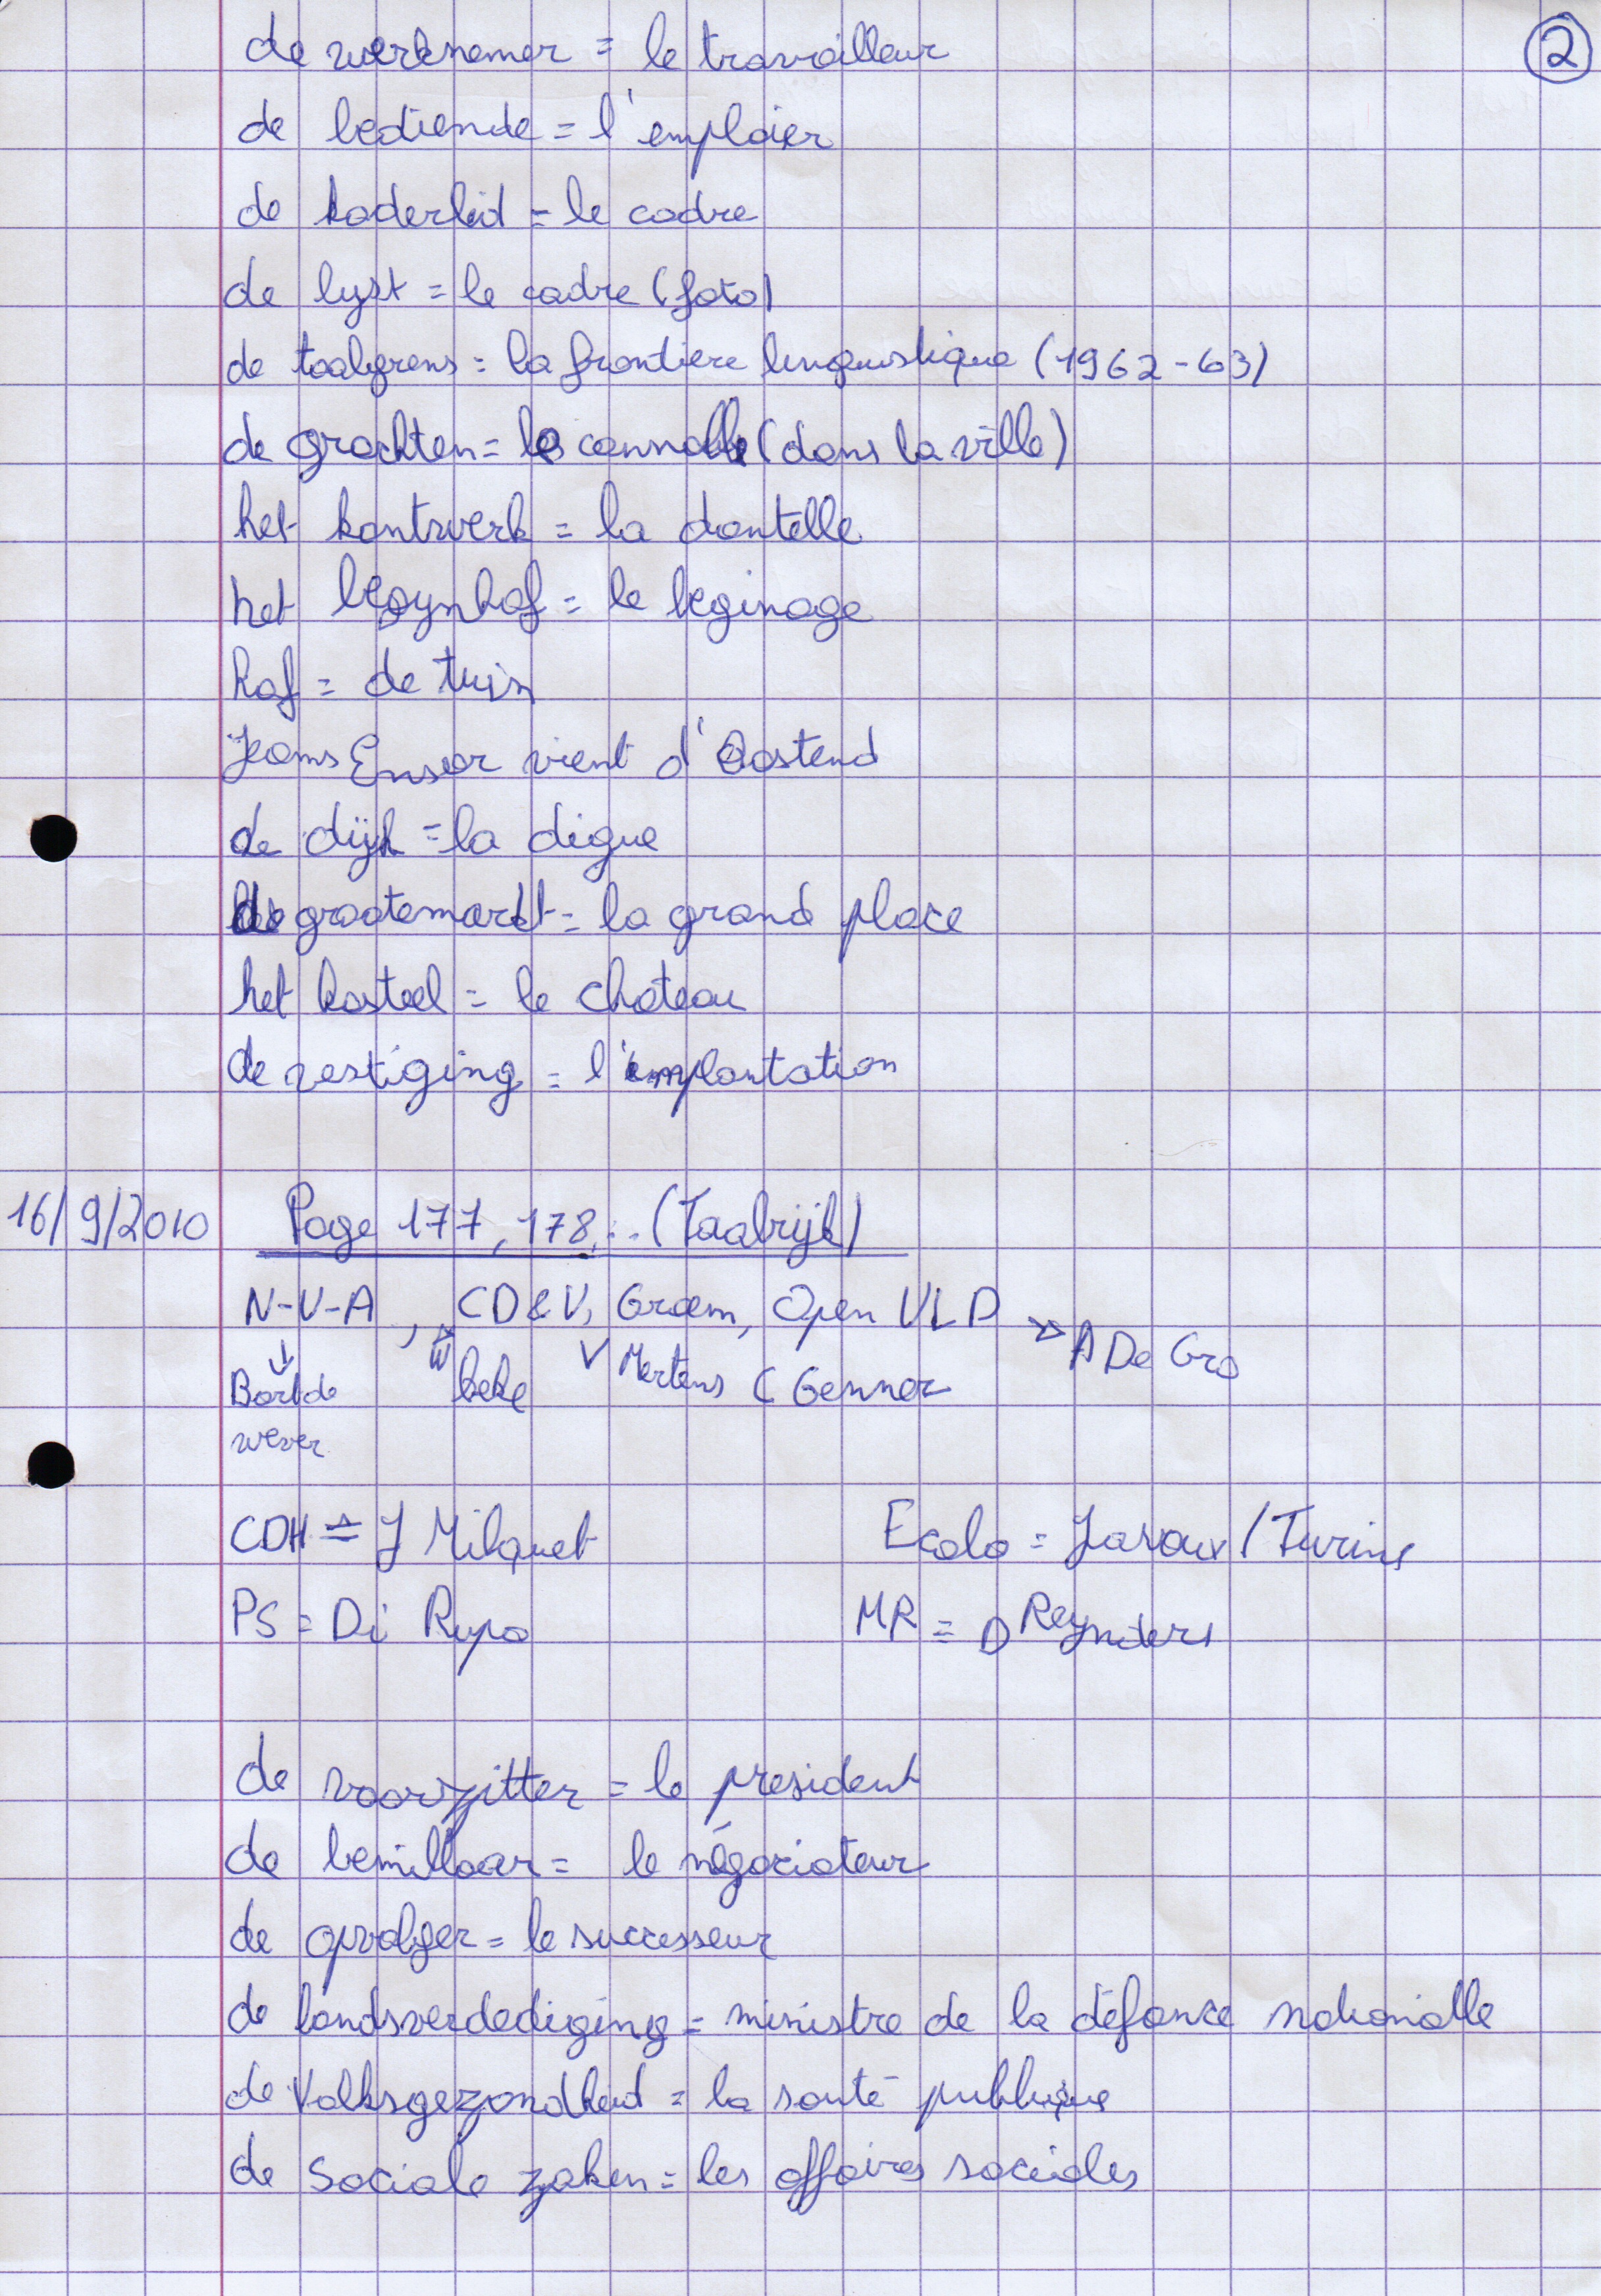 ②
de werknemer = le travailleur
de bediende = l'emploier
de kaderlid = le cadre
de lyst = le cadre (foto)
de taalgrens = la frontiere linguistique (1962-63)
de grachten = les cannalle (dans la ville)
het kantwerk = la dantelle
het begynhof = le beginage
hof = de tuin
Jeams Ensor vient d'Oostend
de dijk = la digue
de grootemarkt = la grand place
het kasteel = le chateau
de vestiging = l'implantation
16/9/2010 Page 177, 178,... (Taalrijk)
N-V-A, CD&V, Groen, Open VLD → A De Cro
↓ Bart de W beke V Mertens C Genner
wever
CDH = J Milquet Ecolo = Javaux / Turine
PS = Di Rupo MR = D Reynders
de voorzitter = le president
de bemillaar = le négociateur
de opvolger = le successeur
de landsverdediging = ministre de la défance nationalle
de Volksgezondheid = la santé publique
de Sociale zaken = les affaires sociales